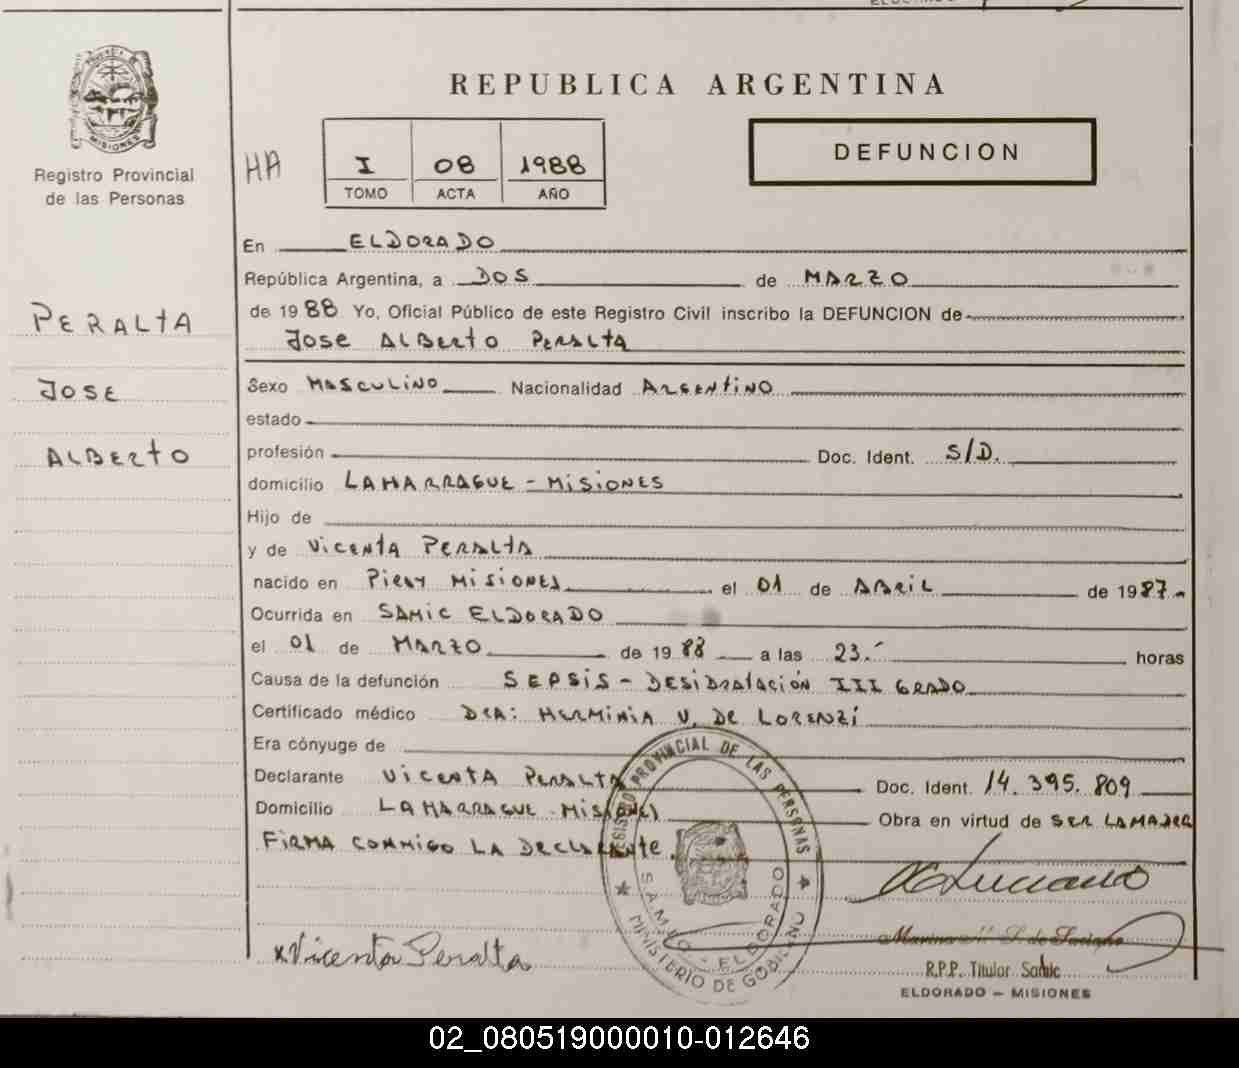 MISIONES
Registro Provincial
de las Personas
PERALTA
JOSE
ALBERTO
REPUBLICA ARGENTINA
HA
I 08 1988
TOMO ACTA AÑO
DEFUNCION
En ELDORADO
República Argentina, a DOS de MARZO
de 1988 Yo, Oficial Público de este Registro Civil inscribo la DEFUNCION de
JOSE ALBERTO PERALTA
Sexo MASCULINO Nacionalidad ARGENTINO
estado
profesión Doc. Ident. S/D.
domicilio LAHARRAGUE - MISIONES
Hijo de
y de VICENTA PERALTA
nacido en PIRAY MISIONES el 01 de ABRIL de 1987-
Ocurrida en SAMIC ELDORADO
el 01 de MARZO de 1988 a las 23.- horas
Causa de la defunción SEPSIS - DESIDRATACIÓN III GRADO
Certificado médico DRA: HERMINIA V. DE LORENZI
Era cónyuge de
Declarante VICENTA PERALTA Doc. Ident. 14.395.809
Domicilio LAHARRAGUE - MISIONES Obra en virtud de SER LA MADRE
FIRMA CONMIGO LA DECLARANTE.
REGISTRO PROVINCIAL DE LAS PERSONAS
ELDORADO
MINISTERIO DE GOBIERNO
x Vicenta Peralta
R.P.P. Titular Samic
ELDORADO - MISIONES
02_080519000010-012646